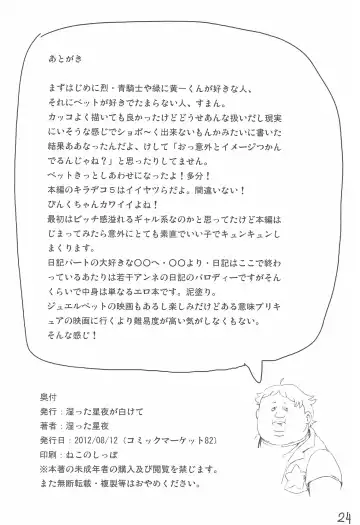 あとがき
まずはじめに烈・青騎士や緑に黄一くんが好きな人、
それにペットが好きでたまらない人、すまん。
カッコよく描いても良かったけどどうせあんな扱いだし現実
にいそうな感じでショボ~く出来ないもんかみたいに書いた
結果ああなったんだよ、けして「おっ意外とイメージつかん
でるんじゃね?」と思ったりしてません。
ペットきっとしあわせになったよ!多分!
本編のキラデコ5はイイヤツらだよ。間違いない!
ぴんくちゃんカワイイよね!
最初はビッチ感溢れるギャル系なのかと思ってたけど本編は
じまってみたら意外にとても素直でいい子でキュンキュンし
まくります。
日記パートの大好きな○○へ・○○より・日記はここで終わ
っているあたりは若干アンネの日記のパロディーですがそん
くらいで中身は単なるエロ本です。泥塗り。
ジュエルペットの映画もあるし楽しみだけどある意味プリキ
ュアの映画に行くより難易度が高い気がしなくもない。
そんな感じ!
奥付
発行:淫った星夜が白けて
著者:淫った星夜
発行日:2012/08/12(コミックマーケット82)
印刷:ねこのしっぽ
※本書の未成年者の購入及び閲覧を禁じます。
また無断転載・複製等はおやめください。
24